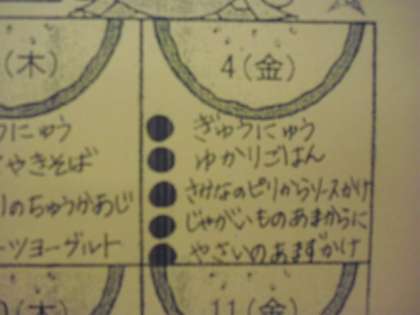 (木)
4(金)
うにゅう
ぎゅうにゅう
やきそば
ゆかりごはん
りのちゅうかあじ
さかなのピリからソースかけ
じゃがいものあまからに
ーツヨーグルト
やさいのあまずかけ
(木)
11(金)